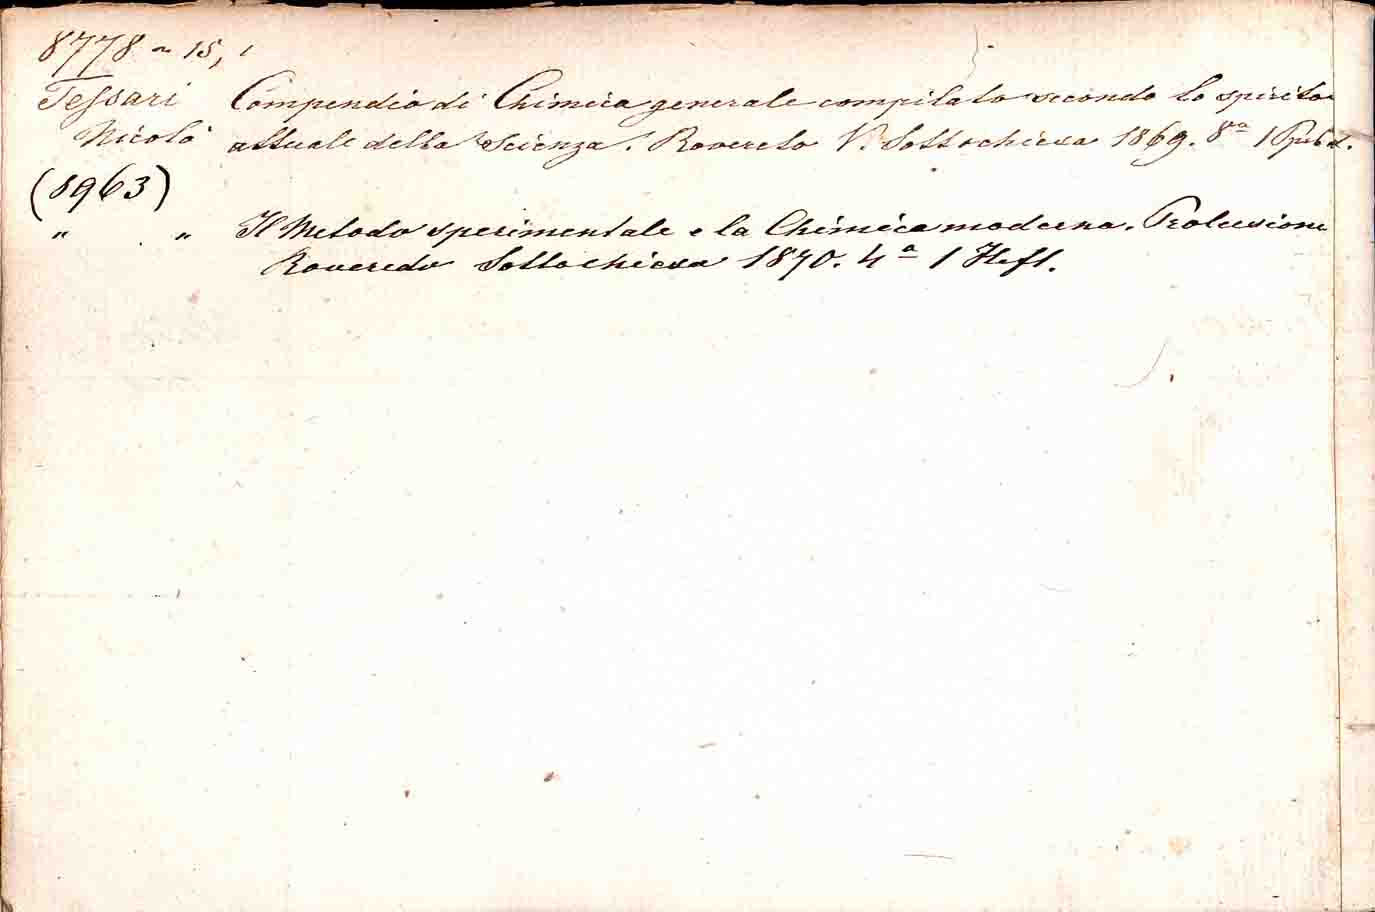 8778 ~ 15, 1
Tessari Compendio di Chimica generale compilato secondo lo spirito
Nicolò attuale della Scienza. Rovereto V. Sottochiesa 1869. 8va 1
(8963)
" " Il Metodo sperimentale e la Chimica moderna. Prolusione
Roveredo Sottochiesa 1870. 4a 1 Heft.